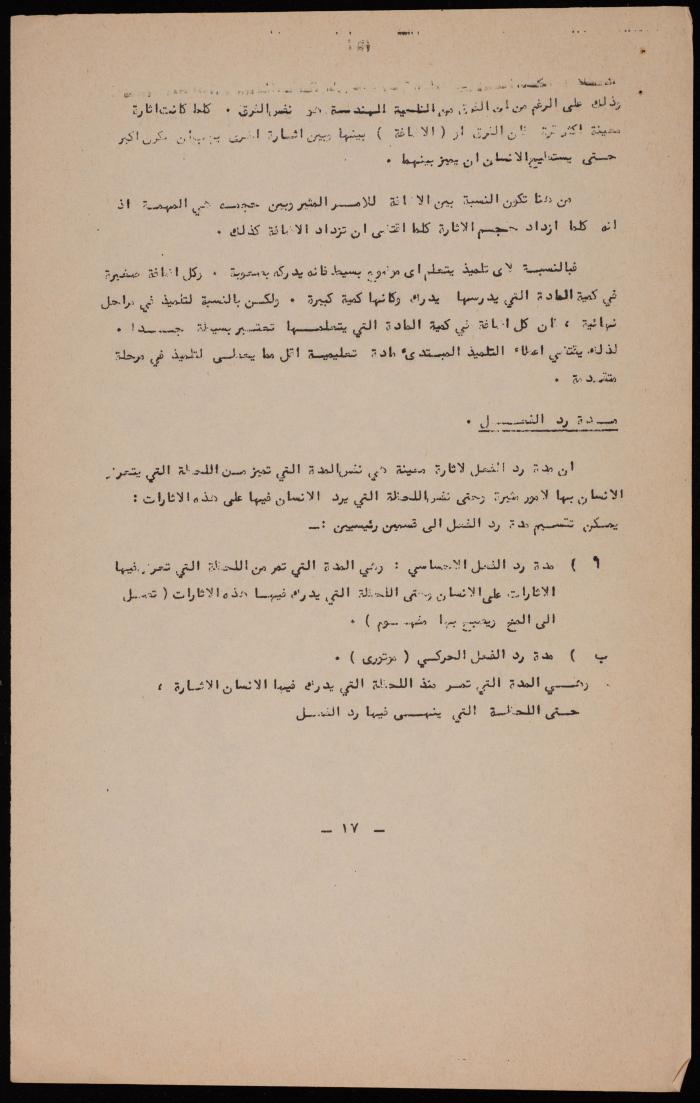 وذلك على الرغم من ان الفرق من الناحية الهندسة هو نفس الفرق . كلما كانت اثارة
معينة اكثر قوة فان الفرق او ( الاضافة ) بينها وبين اشارة اخرى يجب ان يكون اكبر
حتى يستطيع الانسان ان يميز بينهما .
من هنا تكون النسبة بين الاضافة للامر المثير وبين حجمه هي المهمة اذ
انه كلما ازداد حجم الاثارة كلما اقتضى ان تزداد الاضافة كذلك .
فبالنسبة لاى تلميذ يتعلم اى موضوع بسيط فانه يدركه بصعوبة . وكل اضافة صغيرة
في كمية المادة التي يدرسها يدرك وكانها كمية كبيرة . ولكن بالنسبة لتلميذ في مراحل
نهائية ، فان كل اضافة في كمية المادة التي يتعلمها تعتبر بسيطة جدا .
لذلك يقتضي اعطاء التلميذ المبتدئ مادة تعليمية اقل مما يعطى لتلميذ في مرحلة
متقدمة .
مدة رد الفعل .
ان مدة رد الفعل لاثارة معينة هي نفس المدة التي تميز من اللحظة التي يتعرض
الانسان بها لامور مثيرة وحتى نفس اللحظة التي يرد الانسان فيها على هذه الاثارات :
يمكن تقسيم مدة رد الفعل الى قسمين رئيسيين : ـ
٩ ) مدة رد الفعل الاحساسي : وهي المدة التي تمر من اللحظة التي تعرض فيها
الاثارات على الانسان وحتى اللحظة التي يدرك فيها هذه الاثارات ( تصل
الى المخ ويصبح بها مفهوم ) .
ب ) مدة رد الفعل الحركي ( موتورى ) .
وهي المدة التي تمر منذ اللحظة التي يدرك فيها الانسان الاشارة ،
حتى اللحظة التي ينهى فيها رد الفعل
ـ ١٧ ـ